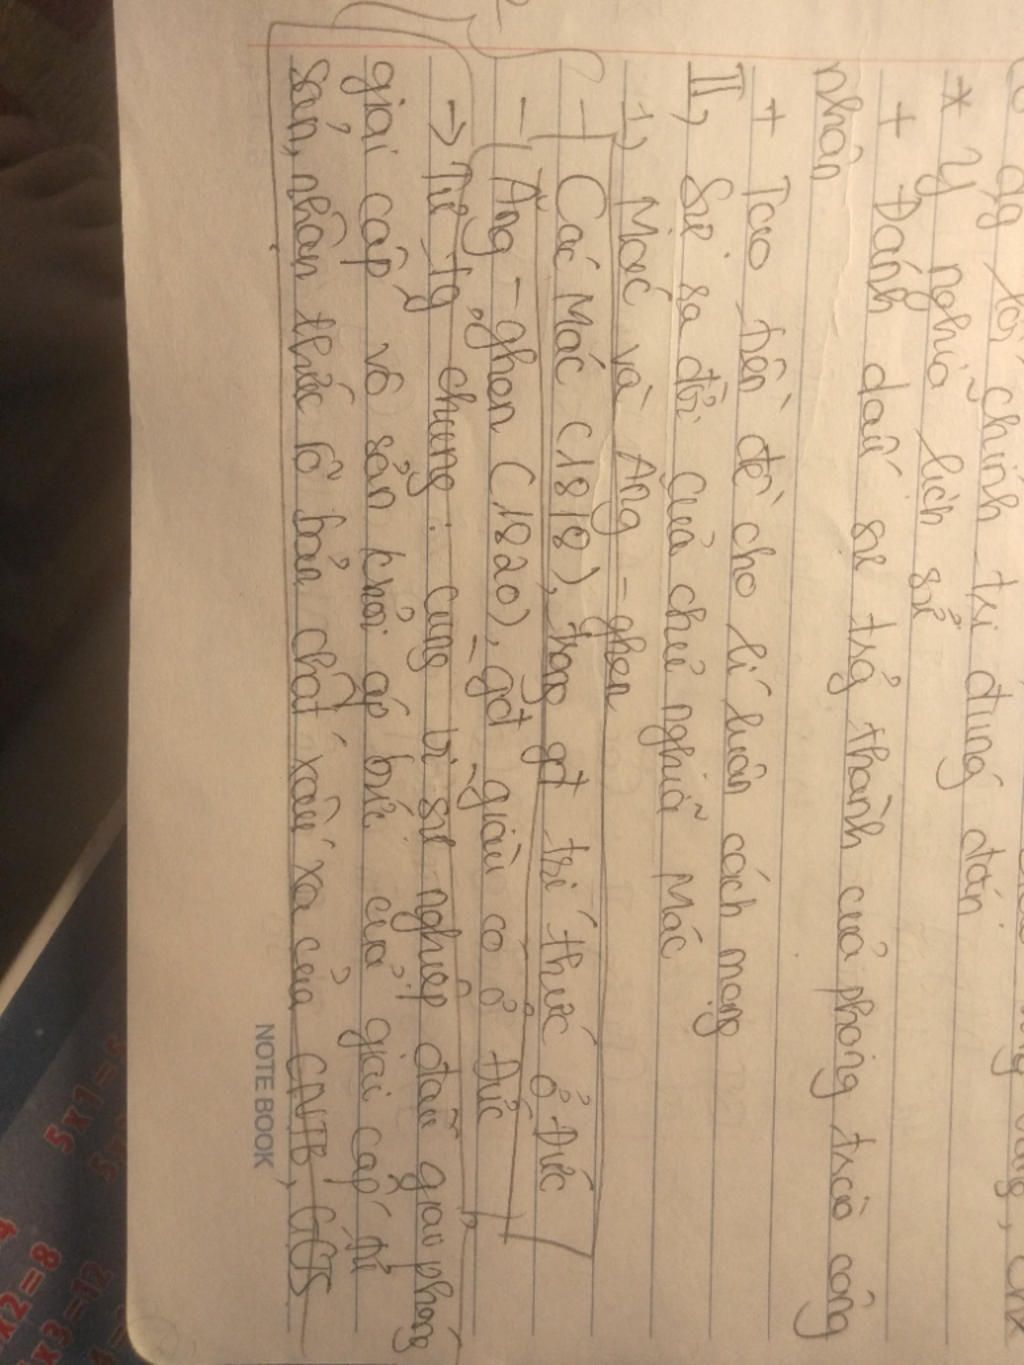 lối chính trị đúng đắn
* Ý nghĩa lịch sử
+ Đánh dấu sự trở thành của phong trào công
nhân
+ Tạo tiền đề cho lí luận cách mạng
II, Sự ra đời của chủ nghĩa Mác
1, Mác và Ăng-ghen
- Các Mác (1818), trong gđ trí thức ở Đức
- Ăng-ghen (1820), gđ giàu có ở Đức
-> Tư tg chung: cùng vì sự nghiệp đấu giải phóng
giai cấp vô sản khỏi áp bức của giai cấp tư
sản, nhận thức rõ bản chất xấu xa của CNTB, GCTS
NOTE BOOK
5x1=5
x2=8
x3=12